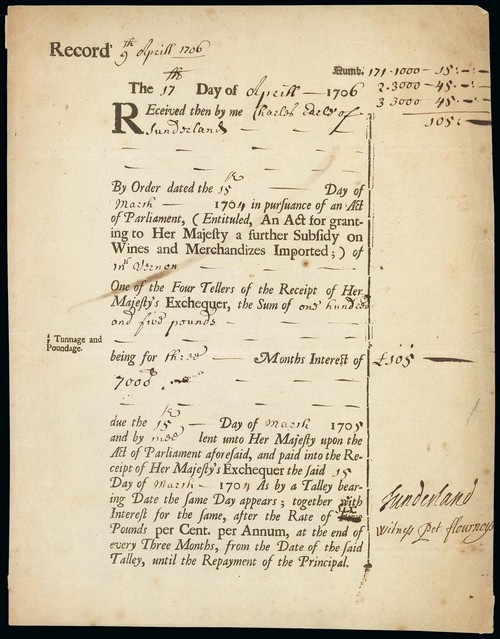 Record' 9th Aprill 1706
Numb. 171 - 1000 - 15 : - : -
2 - 3000 - 45 : - : -
3 3000 - 45 : - : -
105 : -
The 17th Day of Aprill — 1706
REceived then by me Charles Earle of
Sunderland
By Order dated the 15th Day of
March — 1704 in pursuance of an Act
of Parliament, (Entituled, An Act for grant-
ing to Her Majesty a further Subsidy on
Wines and Merchandizes Imported;) of
mr Vernon
One of the Four Tellers of the Receipt of Her
Majesty's Exchequer, the Sum of one hundred
and five pounds
⅔ Tunnage and
Poundage.
being for three — Months Interest of £105 —
7000
due the 15th — Day of March 1705
and by mee lent unto Her Majesty upon the
Act of Parliament aforesaid, and paid into the Re-
ceipt of Her Majesty's Exchequer the said 15
Day of March — 1704 As by a Talley bear-
ing Date the same Day appears; together with
Interest for the same, after the Rate of Six
Pounds per Cent. per Annum, at the end of
every Three Months, from the Date of the said
Talley, until the Repayment of the Principal.
Sunderland
Witness Pet flournoys